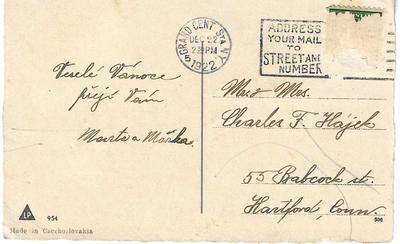 GRAND CENT. STA. N.Y.
DEC 22
2 30 PM
1922
ADDRESS
YOUR MAIL
TO
STREET AND
NUMBER
Veselé Vánoce
přejí Vám
Marta a Mářka.
Mr. & Mrs.
Charles F. Hájek
55 Babcock st.
Hartford, Conn.
LP 954
Made in Czechoslovakia